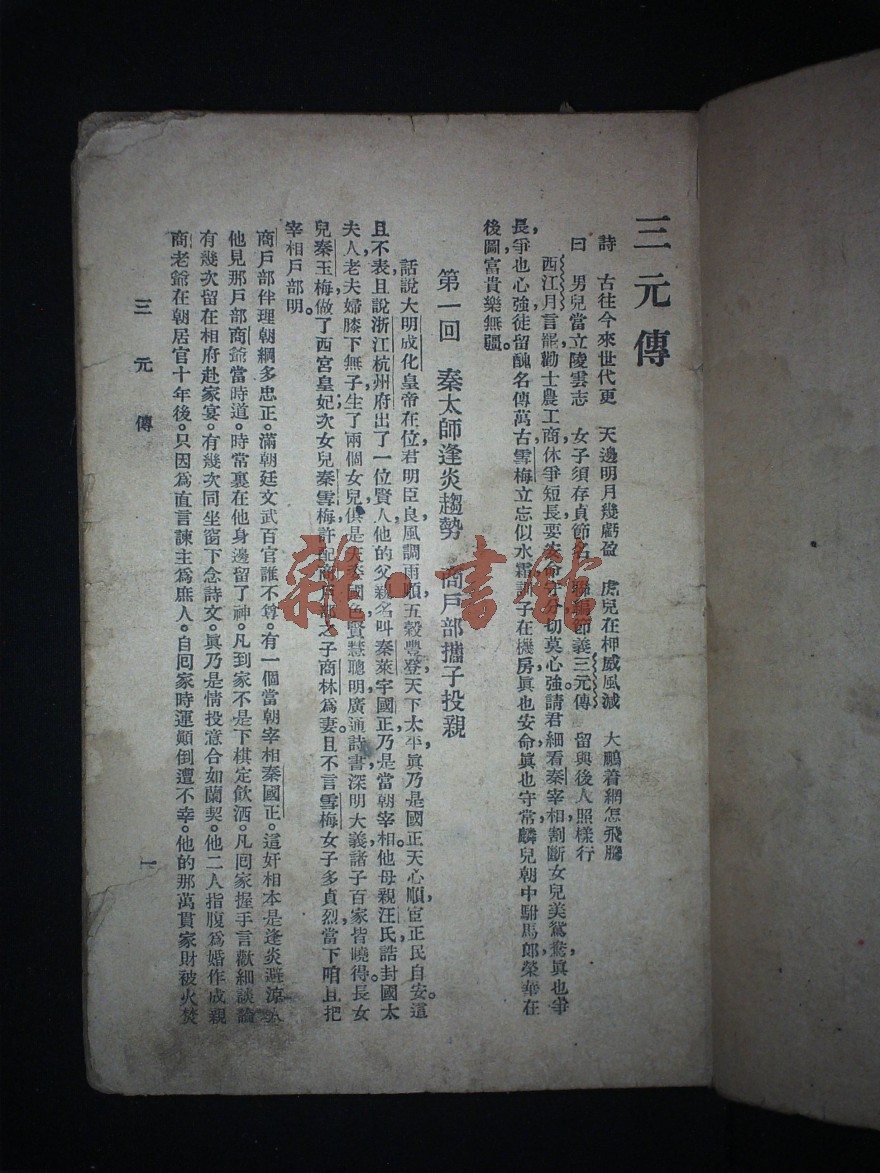 三元傳
詩 古往今來世代更 天邊明月幾虧盈 虎兒在柙威風減 大鵬着網怎飛騰
曰 男兒當立陵雲志 女子須存貞節名 聯編節義三元傳 留與後人照樣行
西江月言罷勸士農工商休爭短長要安命守分切莫心強請君細看秦宰相割斷女兒美鴛鴦眞也爭
長,爭也心強徒留醜名傳萬古雪梅立忘似水霜訓子在機房眞也安命眞也守常麟兒朝中駙馬郎榮華在
後圖富貴樂無疆。
第一回 秦太師逢炎趨勢 商戶部攜子投親
話說大明成化皇帝在位,君明臣良,風調雨順,五穀豐登,天下太平,眞乃是國正天心順,官正民自安。這
且不表,且說浙江杭州府出了一位賢人,他的父親名叫秦萊宇國正,乃是當朝宰相。他母親汪氏,誥封國太
夫人,老夫婦膝下無子,生了兩個女兒,俱是天姿國色,賢慧聰明,廣通詩書,深明大義,諸子百家皆曉得。長女
兒秦玉梅,做了西宮皇妃;次女兒秦雪梅,許配商戶部之子商林爲妻。且不言雪梅女子多貞烈,當下咱且把
宰相戶部明。
商戶部伴理朝綱多忠正。滿朝廷文武百官誰不尊。有一個當朝宰相秦國正。這奸相本是逢炎避涼人
他見那戶部商爺當時道。時常裏在他身邊留了神。凡到家不是下棋定飲酒。凡回家握手言歡細談論
有幾次留在相府赴家宴。有幾次同坐窗下念詩文。眞乃是情投意合如蘭契。他二人指腹爲婚作成親
商老爺在朝居官十年後。只因爲直言諫主爲庶人。自回家時運顚倒遭不幸。他的那萬貫家財被火焚
三元傳
一
雜·書館